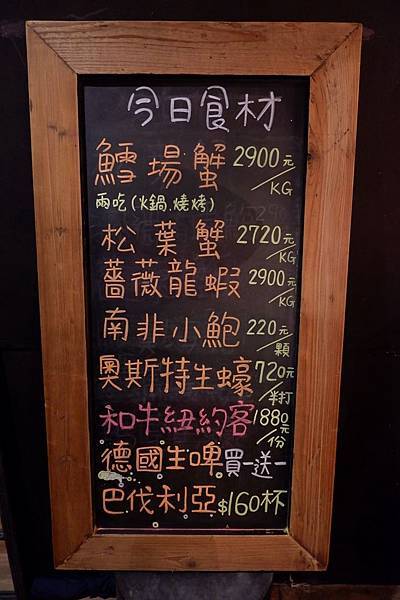 今日食材
鱈場蟹 2900元/KG
兩吃(火鍋、燒烤)
松葉蟹 2720元/KG
薔薇龍蝦 2900元/KG
南非小鮑 220元/顆
奧斯特生蠔 720元/半打
和牛紐約客 1880元/份
德國生啤 買一送一
巴伐利亞 $160杯